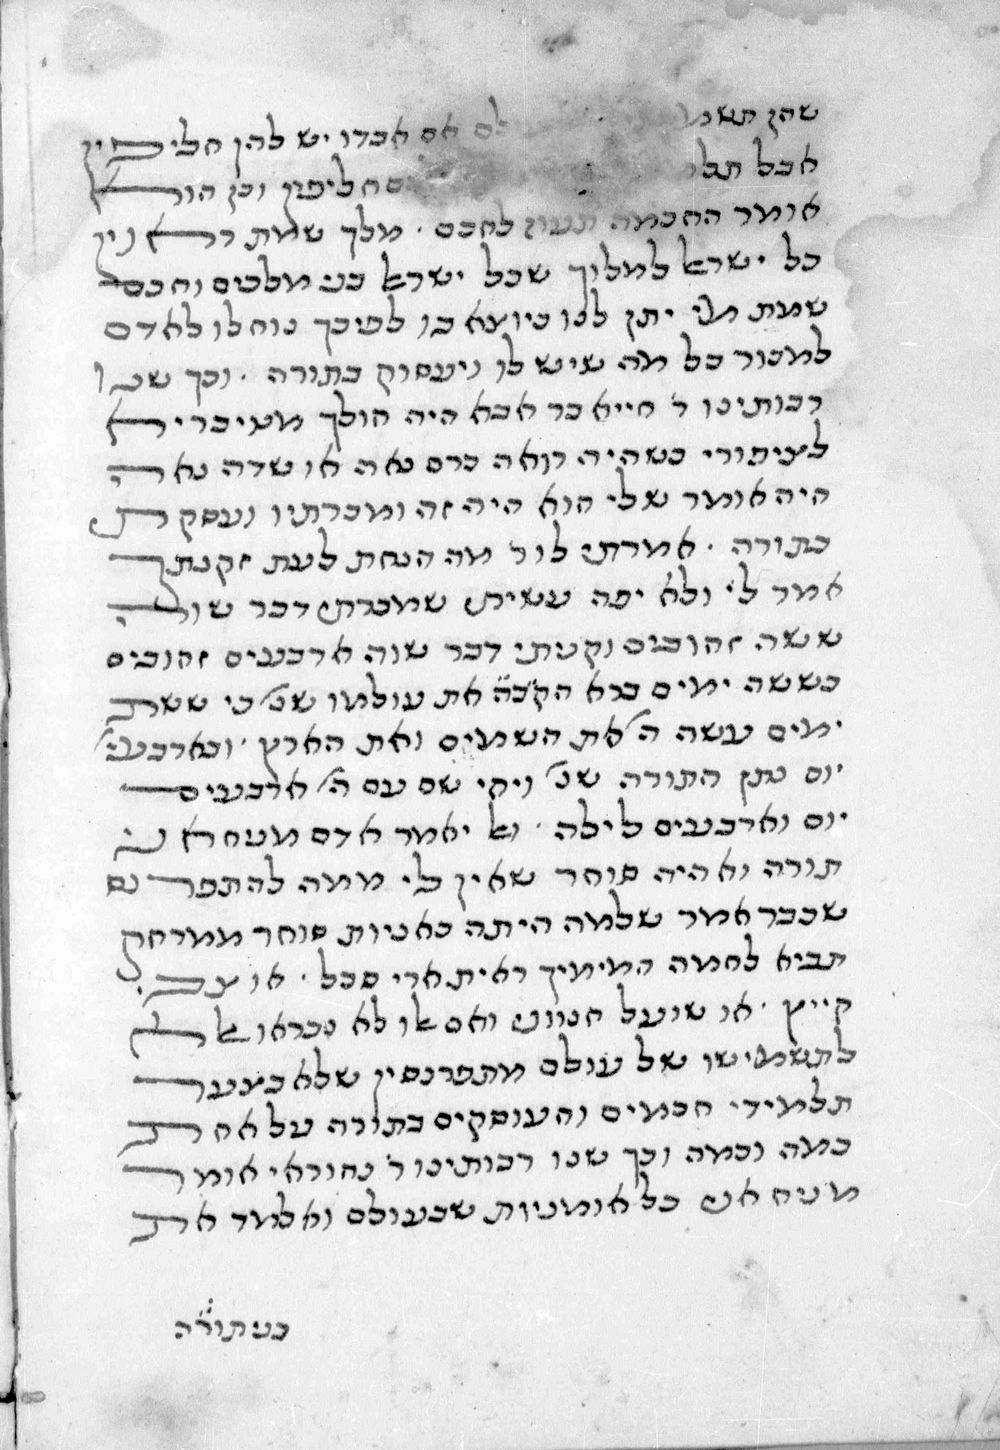 שהן תשמ לם אם אבדו יש להן חליפין
אבל תלמ ם חליפין וכן הוא
אומר החכמה תעוז לחכם · מלך שמת ראוין
כל ישראל למלוך שכל ישראל בני מלכים וחכם
שמת מי יתן לנו כיוצא בו לפיכך נוחלו לאדם
למכור כל מה שיש לו ויעסוק בתורה · וכך שנו
רבותינו ר' חייא בר אבא היה הולך מטיבריא
לציפורי כשהיה רואה כרם נאה או שדה נאה
היה אומר שלי הוא היה זה ומכרתיו ועסקתי
בתורה · אמרתי לו ר' מה הנחת לעת זקנתך
אמר לי ולא יפה עשיתי שמכרתי דבר שוה
ששה זהובים וקניתי דבר שוה ארבעים זהובים
בששה ימים ברא הקב"ה את עולמו שנ' כי ששת
ימים עשה ה' את השמים ואת הארץ · ובארבעי'
יום נתן התורה שנ' ויהי שם עם ה' ארבעים
יום וארבעים לילה · ואל יאמר אדם מניח אני
תורה ואהיה סוחר שאין לי ממה להתפרנס
שכבר אמר שלמה היתה כאניות סוחר ממרחק
תביא לחמה המימיך ראית ארי סבל · או צבי
קייץ · או שועל חנווני ואם אלו לא נבראו אלא
לתשמישו של עולם מתפרנסין שלא בצער
תלמידי חכמים והעוסקים בתורה על אחת
כמה וכמה וכך שנו רבותינו ר' נהוראי אומר
מניח אני כל אומניות שבעולם ואלמד את
בני תורה